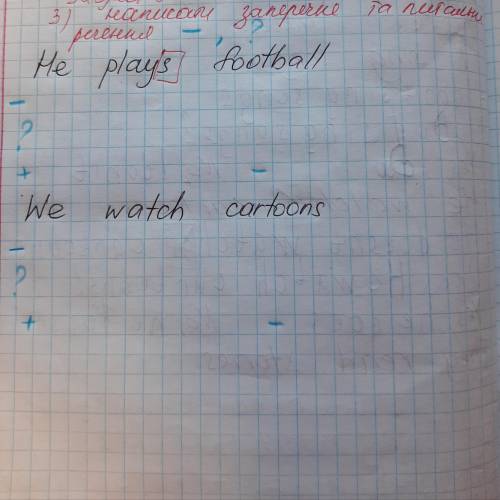 3) написати заперечне та питальне
речення - , ?
He plays football
-
?
+ -
We watch cartoons
-
?
+ -